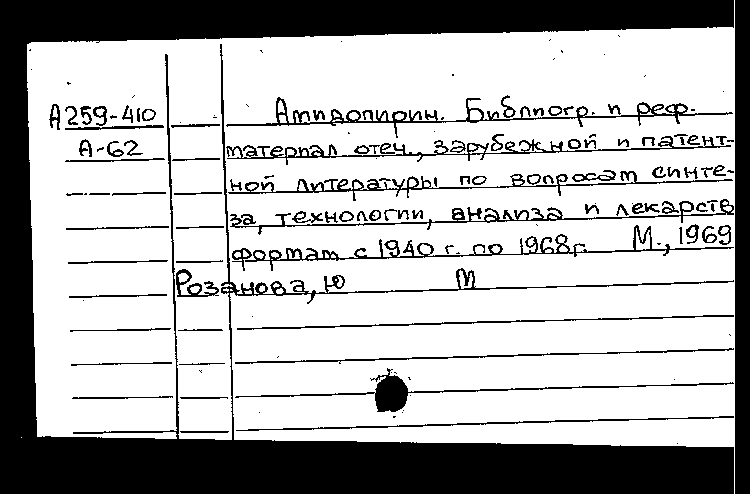 А259-410 Амидопирин. Библиогр. и реф.
А-62 материал отеч., зарубежной и патент-
ной литературы по вопросам синте-
за, технологии, анализа и лекарств
формам с 1940 г. по 1968г. М., 1969
Розанова, Ю М